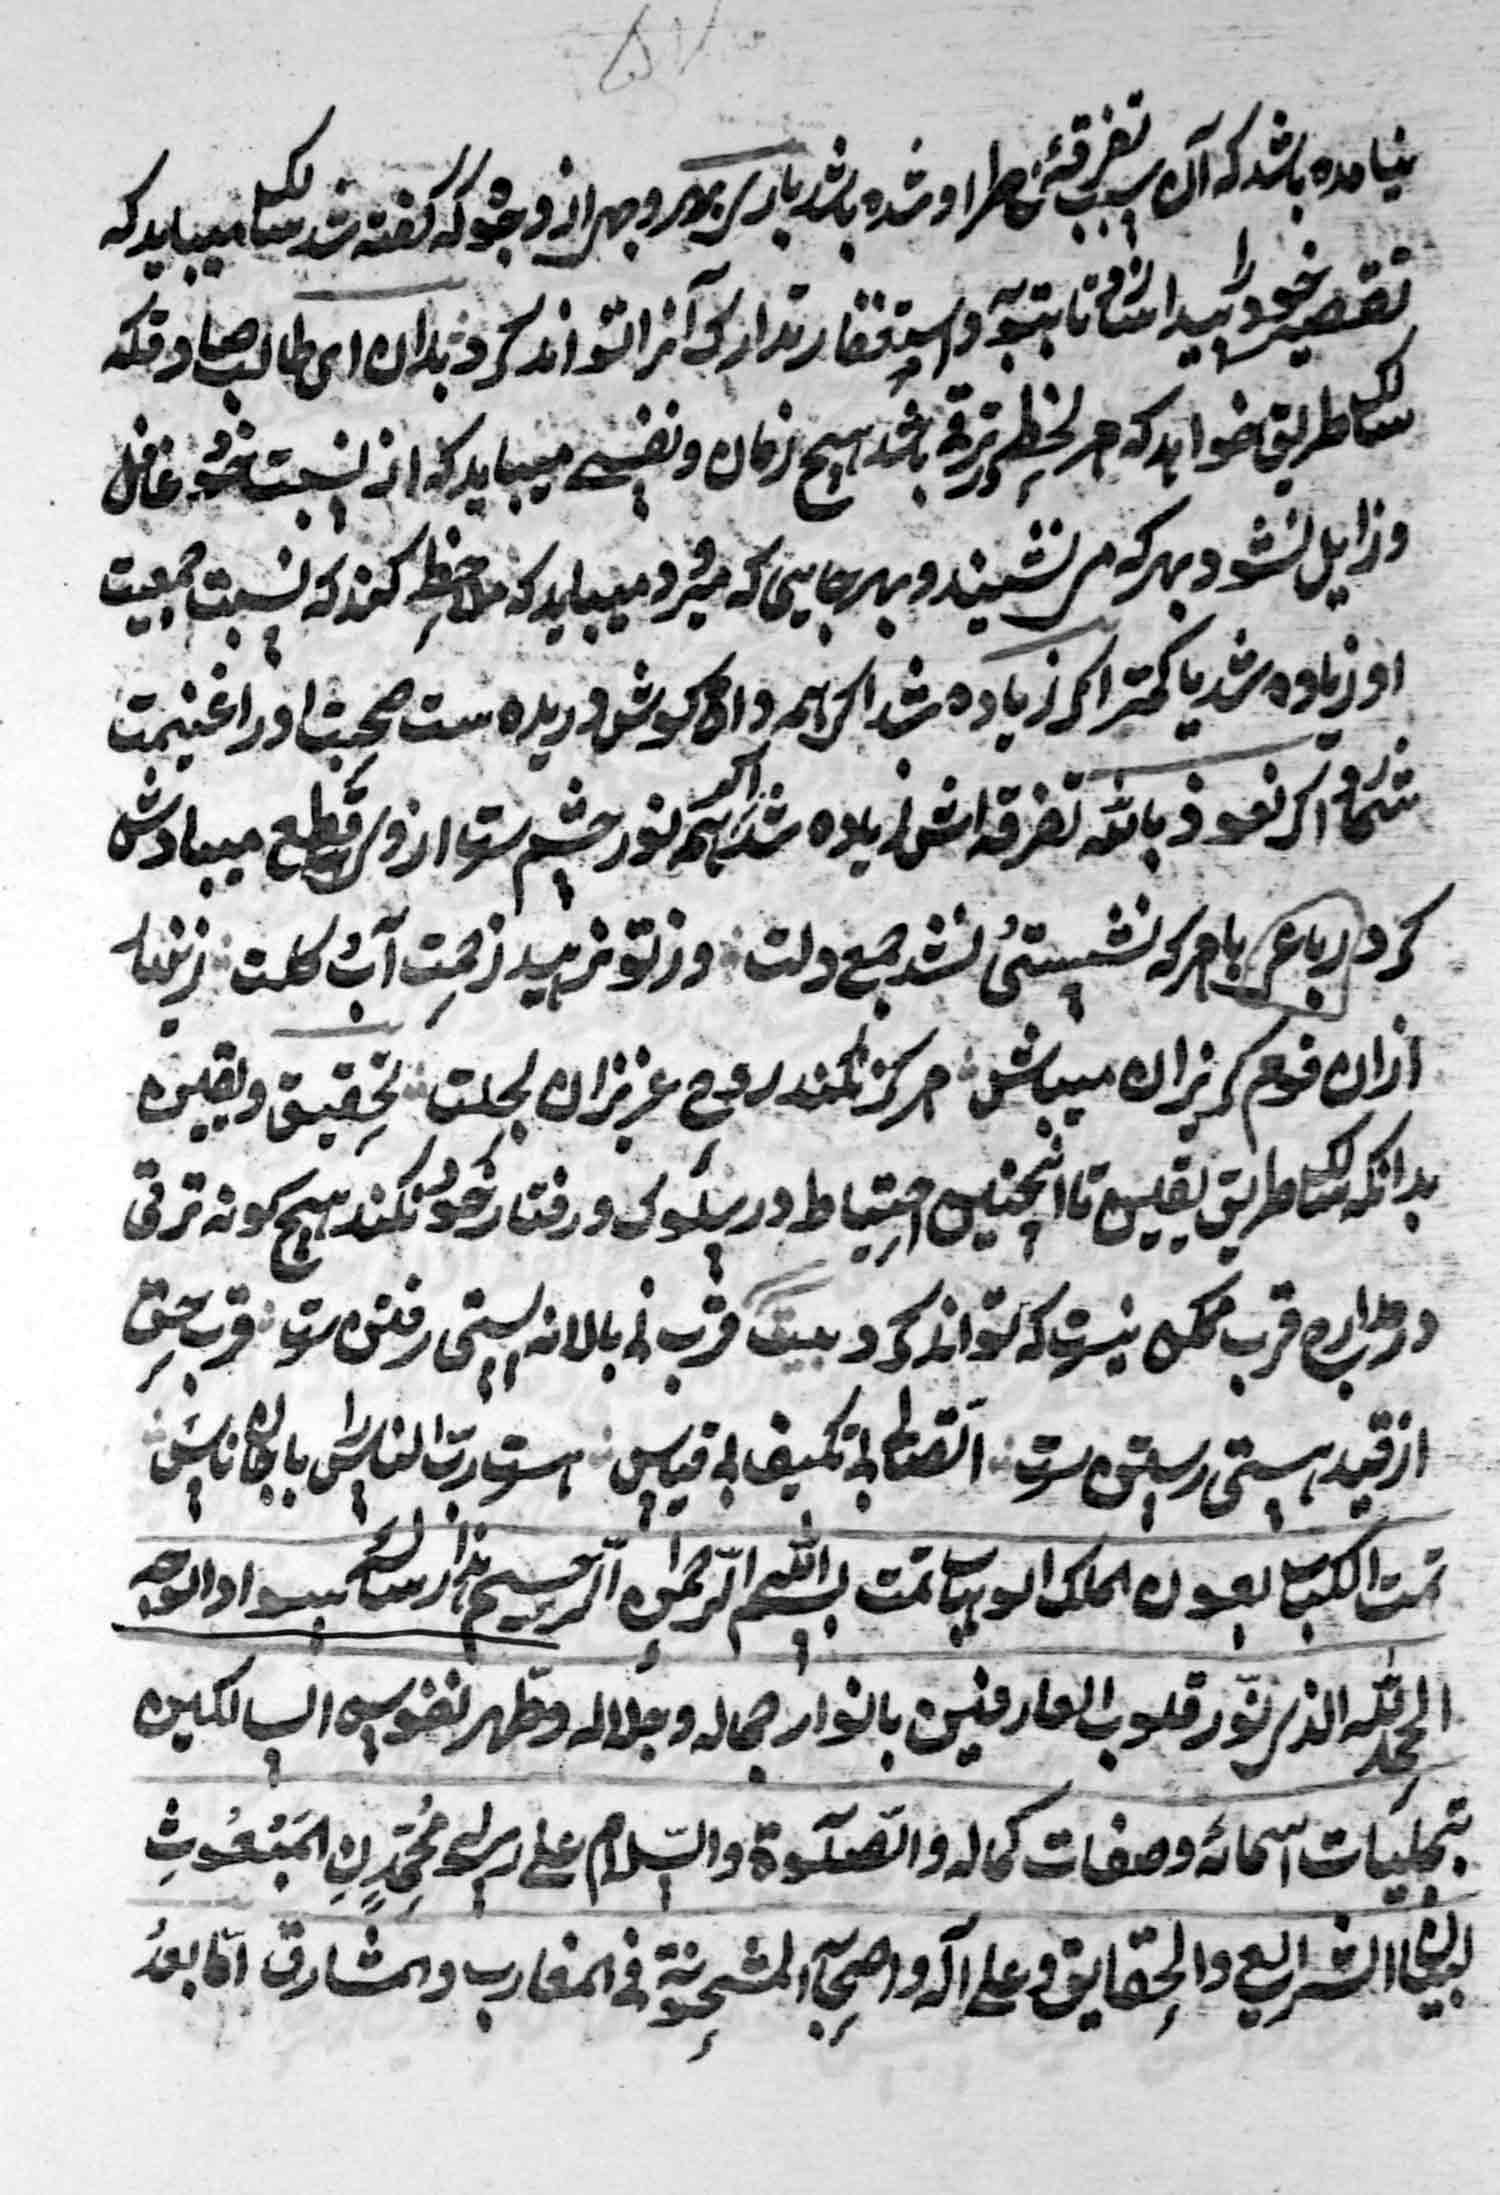 ۵۷
نیامده باشد که آن سبب تفرقهٔ خاطر او شده باشد باری بهر وجهی از وجوه که گفته شد سالک را میباید که
تقصیر خود را پیدا سازد تا بتوبه و استغفار تدارک آنرا تواند کرد بدان ای طالب صادق که
سالک طریق خواهد که هر لحظه در ترقی باشد هیچ زمان و نفسی میباید که از نسبت خود غافل
و زایل نشود بهر که می نشیند و بهر جایی که میرود میباید که ملاحظه کند که نسبت جمعیت
او زیاده شد یا کمتر اگر زیاده شد اگر همه دام گوش دریده ست صحبت او را غنیمت
شمارد و اگر نعوذ بالله تفرقه اش زیاده شد اگر همه نور چشم ست از وی قطع میبادش
کرد رباعی با هر که نشستی و نشد جمع دلت وز تو نرمید زحمت آب و گلت زنهار
ازان قوم گریزان میباش هرگز نکند روح عزیزان بحلت تحقیق و یقین
بدانکه سالک طریق یقین تا اینچنین احتیاط در سلوک و رفتار خود نکند هیچ گونه ترقی
در مدارج قرب ممکن نیست که تواند کرد بیت قرب نی بالا نه پستی رفتن ست قرب حق
از قید هستی رستن ست اتصالی بی تکیف بی قیاس هست رب الناس را با جان ناس
تمت الکتاب بعون الملک الوهاب تمت بسم الله الرحمن الرحیم هذا رسالهٔ سواد الوجه
الحمد لله الذی نور قلوب العارفین بانوار جماله و جلاله و طهر نفوس السالکین
بتجلیات اسمائه و صفات کماله والصلوة والسلام علی رسوله محمدن المبعوث
لبیان الشرایع والحقایق و علی آله و اصحابه المشحونة فی المغارب والمشارق اما بعد